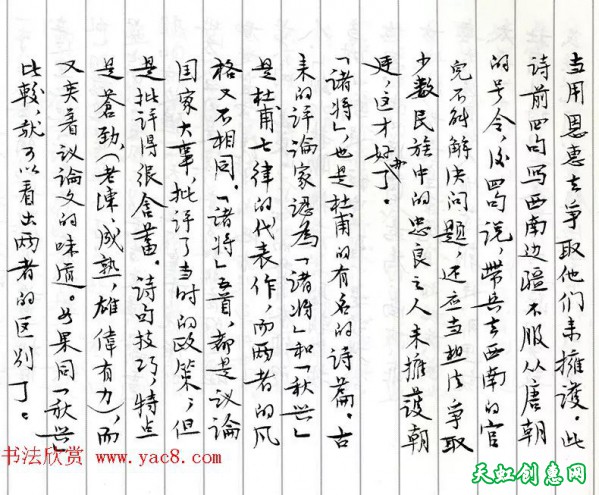 当用恩惠去争取他们来擁護。此
诗前四句写西南边疆不服从唐朝
的号令，後四句说带兵去西南的官
完不能解决问题，还应当想法争取
少数民族中的忠良之人来擁護朝
廷，这才好办了。
「诸将」也是杜甫的有名的诗篇。古
来的评论家認为「诸将」和「秋兴」
是杜甫七律的代表作，而两者的风
格又不相同。「诸将」五首，都是议论
国家大事，批评了当时的政策，但
是批评得很含蓄。诗句技巧，特点
是蒼劲，（老練，成熟，雄偉有力），而
又夹着议论文的味道。如果同「秋兴」
比較，就可以看出两者的区别了。
书法欣赏 www.yac8.com
天虹创意网